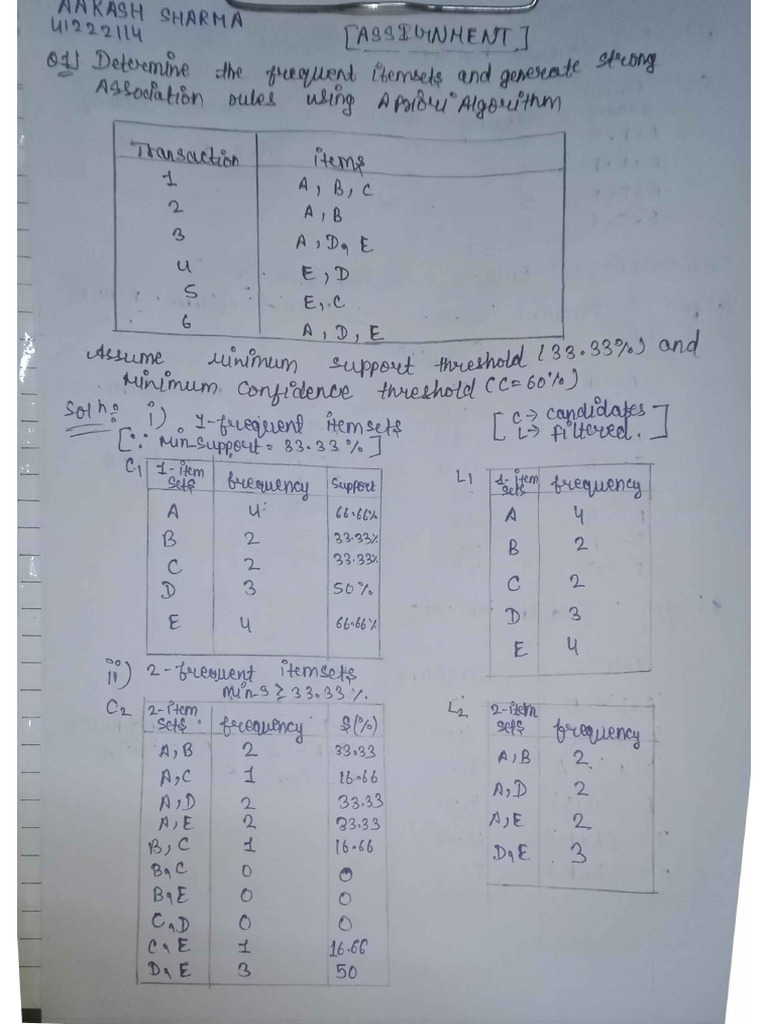 AAKASH SHARMA
41222114
[ASSIGNMENT]
Q1) Determine the frequent itemsets and generate strong
Association rules using Apriori Algorithm
Transaction items
1 A, B, C
2 A, B
3 A, D, E
4 E, D
5 E, C
6 A, D, E
Assume minimum support threshold (33.33%) and
Minimum Confidence threshold (C=60%)
Soln: i) 1-frequent itemsets
[∵ Min-support = 33.33%]
[C → candidates
L → filtered.]
C1 1-item sets frequency Support
A 4 66.66%
B 2 33.33%
C 2 33.33%
D 3 50%
E 4 66.66%
L1 1-item sets frequency
A 4
B 2
C 2
D 3
E 4
ii) 2-frequent itemsets
Min-S ≥ 33.33%.
C2 2-item sets frequency S(%)
A,B 2 33.33
A,C 1 16.66
A,D 2 33.33
A,E 2 33.33
B,C 1 16.66
B,C 0 0
B,E 0 0
C,D 0 0
C,E 1 16.66
D,E 3 50
L2 2-item sets frequency
A,B 2
A,D 2
A,E 2
D,E 3